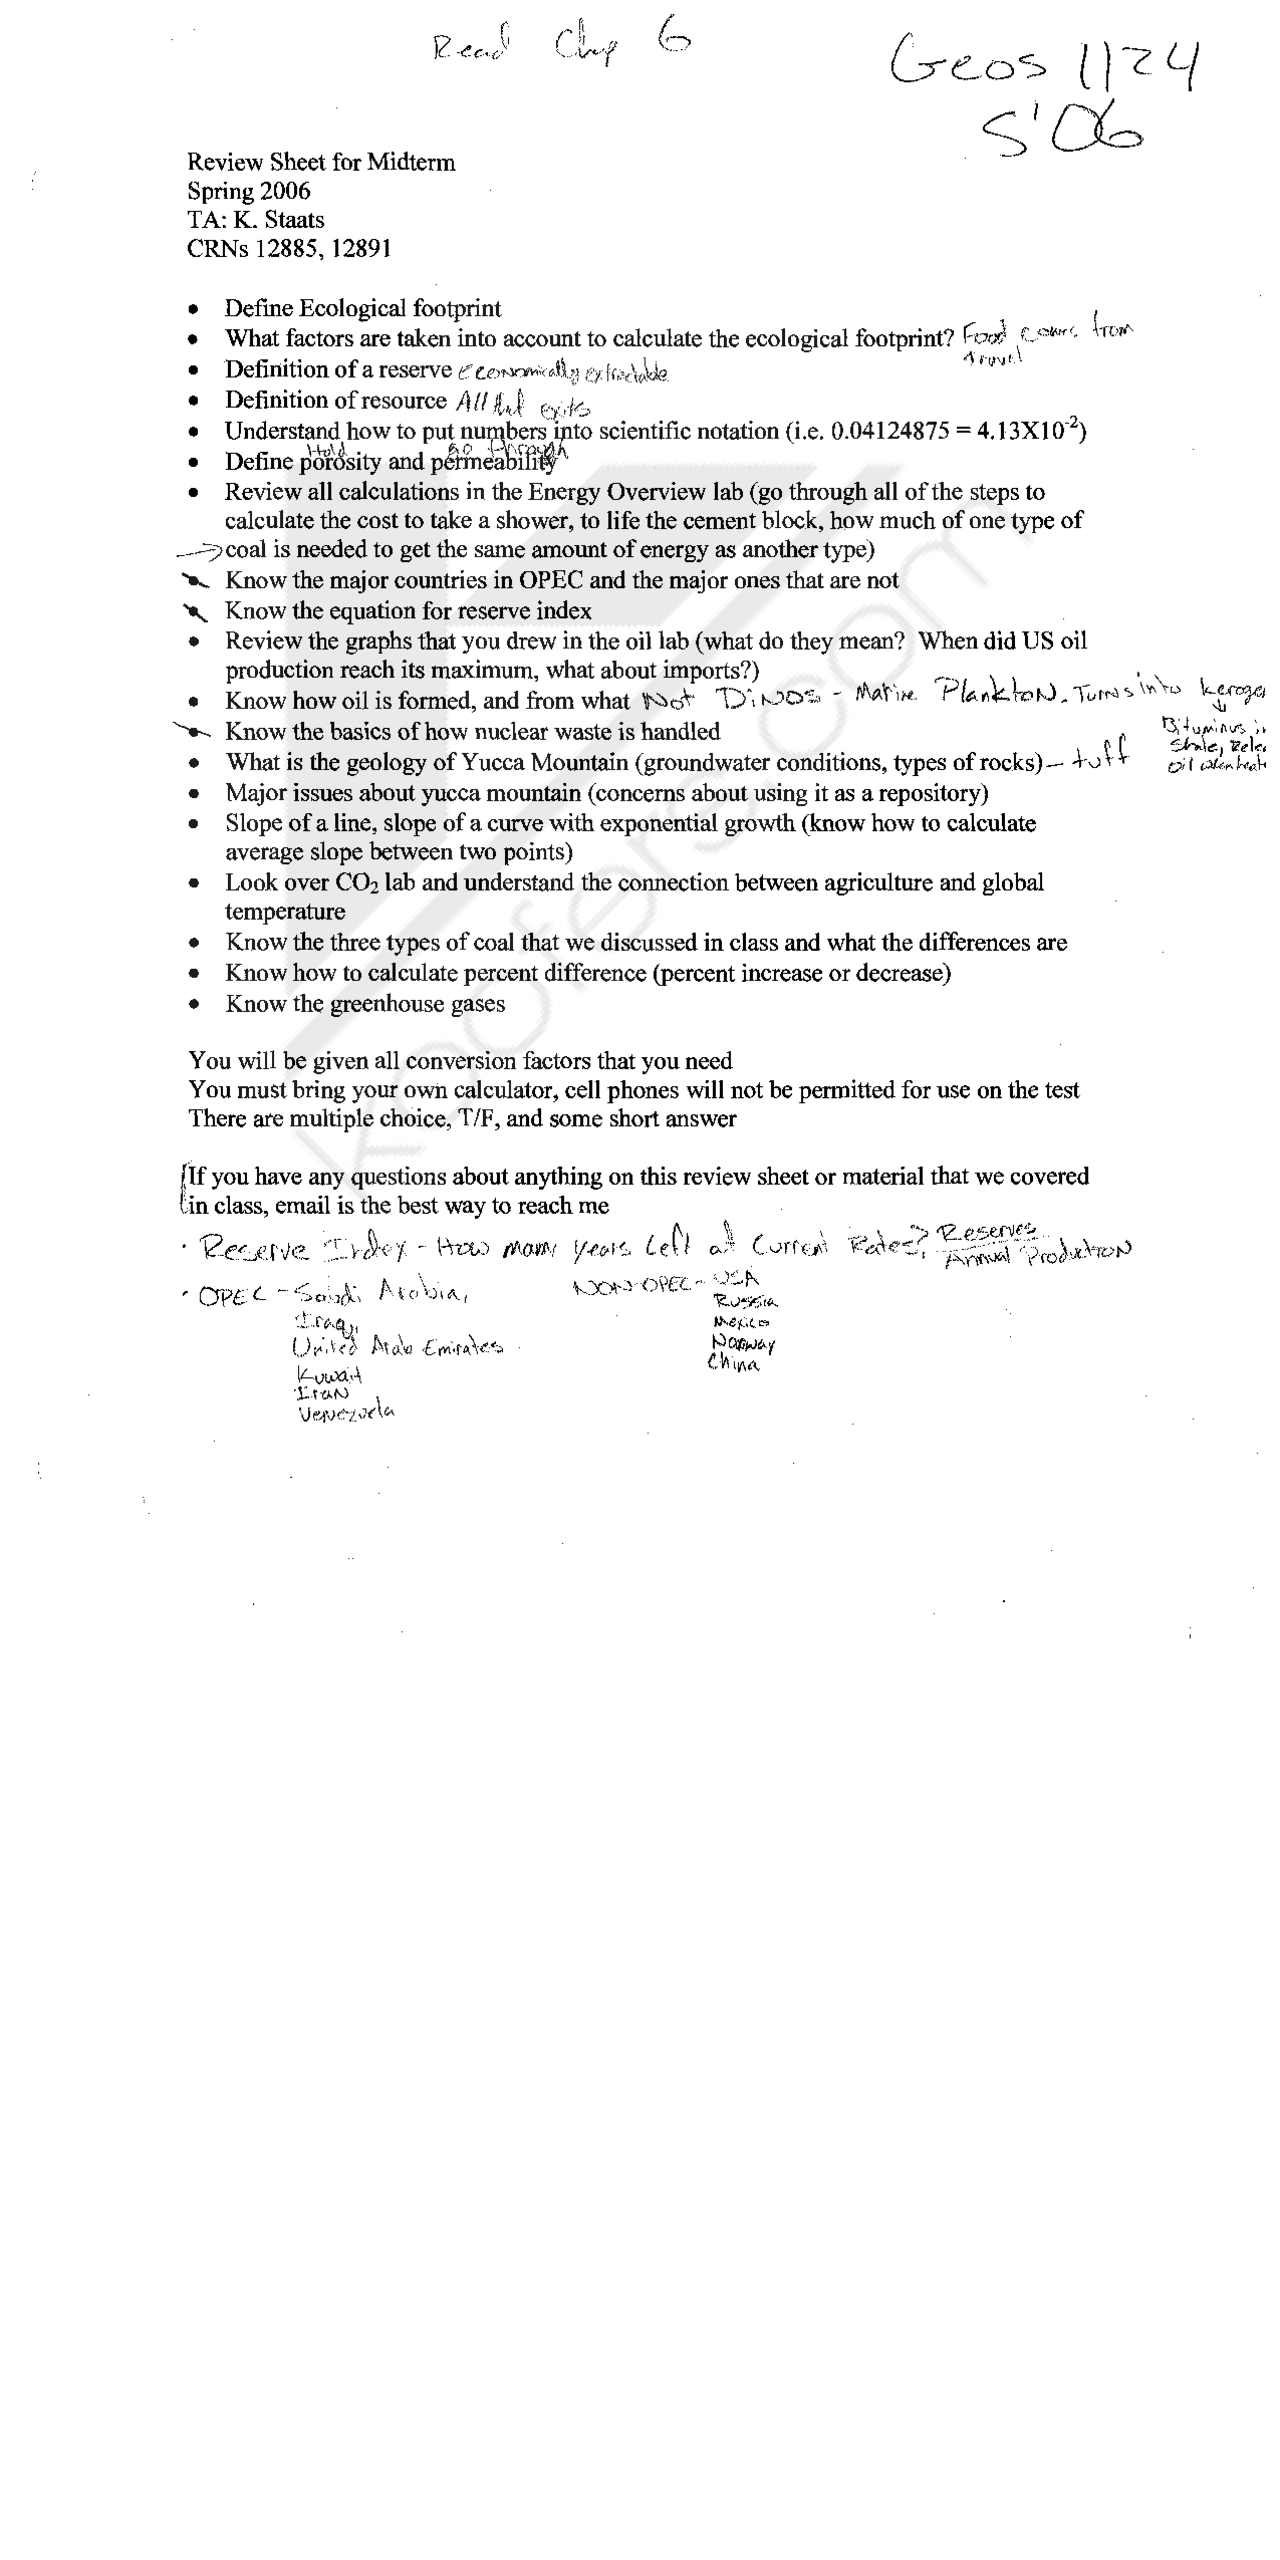 Read Chap 6
Geos 1124
S'06
Review Sheet for Midterm
Spring 2006
TA: K. Staats
CRNs 12885, 12891
• Define Ecological footprint
• What factors are taken into account to calculate the ecological footprint? Food comes from
travel
• Definition of a reserve economically extractable
• Definition of resource All that exits
• Understand how to put numbers into scientific notation (i.e. 0.04124875 = 4.13X10⁻²)
Hold go through
• Define porosity and permeability
• Review all calculations in the Energy Overview lab (go through all of the steps to
calculate the cost to take a shower, to life the cement block, how much of one type of
coal is needed to get the same amount of energy as another type)
• Know the major countries in OPEC and the major ones that are not
• Know the equation for reserve index
• Review the graphs that you drew in the oil lab (what do they mean? When did US oil
production reach its maximum, what about imports?)
• Know how oil is formed, and from what Not DiNOS - Marine PlanktoN. Turns into keroge
↓
Bituminus in
Shale, Rele
oil when heate
• Know the basics of how nuclear waste is handled
• What is the geology of Yucca Mountain (groundwater conditions, types of rocks) – tuff
• Major issues about yucca mountain (concerns about using it as a repository)
• Slope of a line, slope of a curve with exponential growth (know how to calculate
average slope between two points)
• Look over CO₂ lab and understand the connection between agriculture and global
temperature
• Know the three types of coal that we discussed in class and what the differences are
• Know how to calculate percent difference (percent increase or decrease)
• Know the greenhouse gases
You will be given all conversion factors that you need
You must bring your own calculator, cell phones will not be permitted for use on the test
There are multiple choice, T/F, and some short answer
If you have any questions about anything on this review sheet or material that we covered
in class, email is the best way to reach me
· Reserve Index - How many years left at Current Rates? Reserves
Annual Production
· OPEC - Saudi Arabia, NON-OPEC - USA
Iraq, Russia
United Arab Emirates Mexico
Kuwait Norway
Iran China
Venezuela
koofers.com